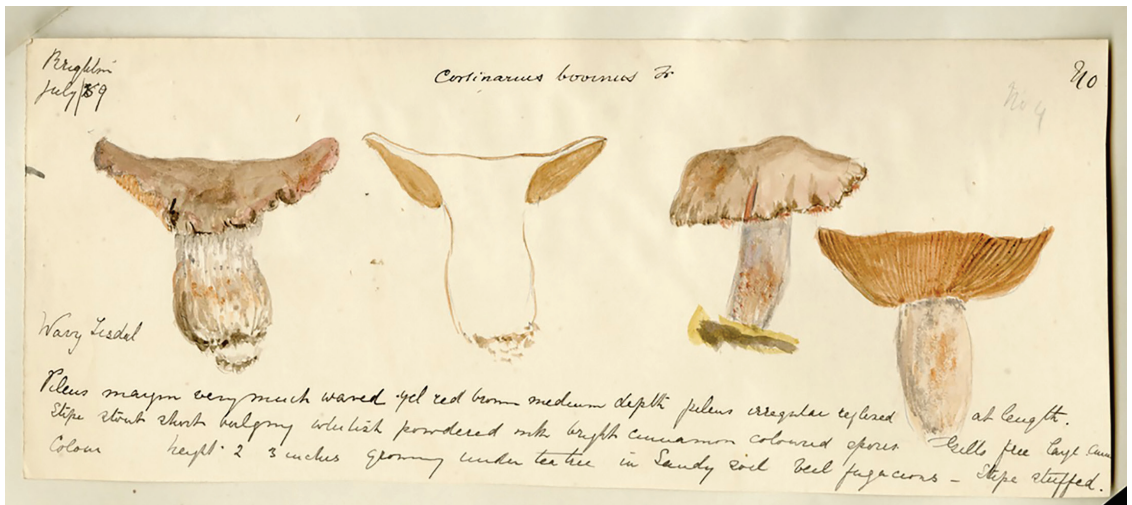 Brighton
July/89
Cortinarius bovinus Fr
No 4
Wavy
Pileus margin very much waved yel red brown medium depth pileus irregular reflexed at length.
Stipe stout short bulging whitish powdered with bright cinnamon coloured spores Gills free
Colour height 2 3 inches growing under teatree in Sandy soil Veil fugacious - Stipe stuffed.